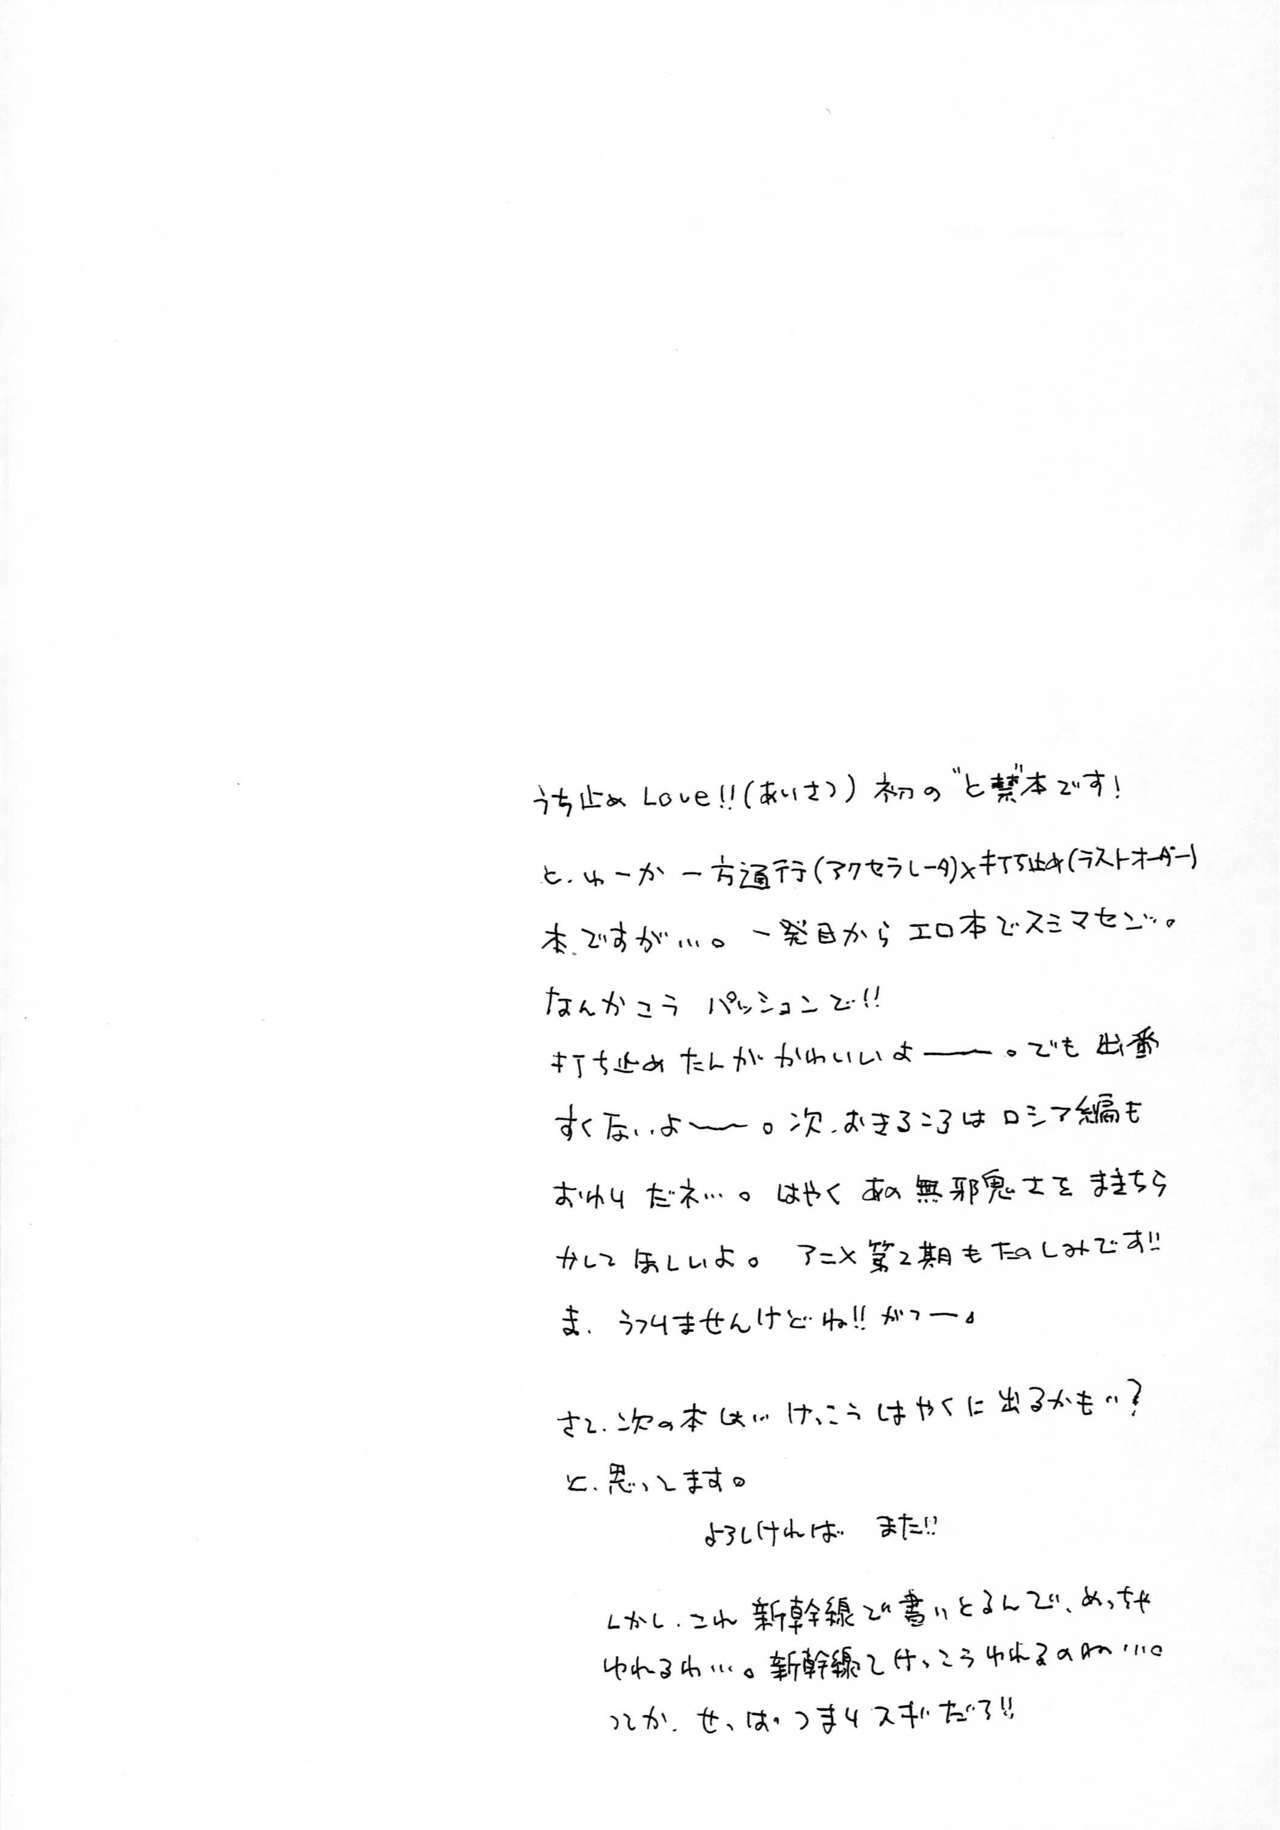 うち止め Love!!(あいさつ) 初の"と禁"本です!
と、ゆーか 一方通行(アクセラレータ)×打ち止め(ラストオーダー)
本、ですが…。一発目から エロ本でスミマセン…。
なんかこう パッションで!!
打ち止めたんが かわいいよーー。でも 出番
すくないよーー。次、おきるころは ロシア編も
おわりだネ…。はやく あの 無邪鬼さを まきちら
かして ほしいよ。 アニメ 第2期も たのしみです!!
ま、うつりませんけどね!! がつー。
さて、次の本は… けっこう はやくに 出るかも…?
と、思ってます。
よろしければ また!!
しかし、これ 新幹線で書いとるんで、めっちゃ
ゆれるわ…。新幹線て けっこう ゆれるのね…。
つてか、せっぱつまりスギだろ!!